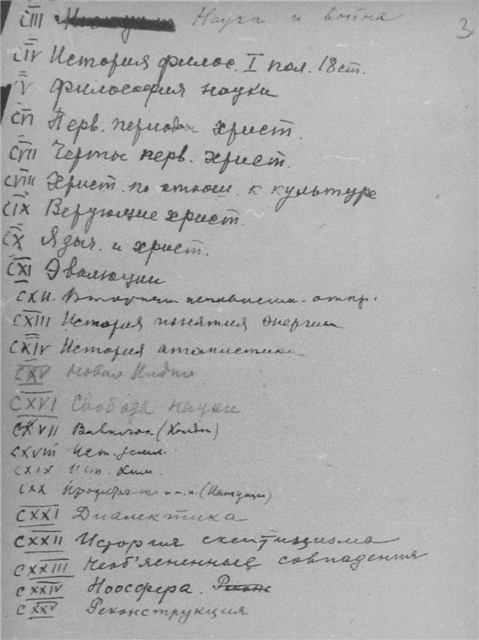 CIII Наука и война 3
CIV История филос. I пол. 18 ст.
CV Философия науки
CVI Перв. периоды христ.
CVII Черты перв. христ.
CVIII Христ. по отнош. к культуре
CIX Верующие христ.
CX Языч. и христ.
CXI Эволюции
CXII. независим. откр.
CXIII История понятия энергии
CXIV История атомистики
CXV Новая Индия
CXVI Свобода науки
CXVII Вавилон. (Халдеи)
CXVIII Ист. земл.
CXIX Ист. Хим.
CXX
CXXI Диалектика
CXXII История скептицизма
CXXIII Необ'ясненные совпадения
CXXIV Ноосфера.
CXXV Реконструкция